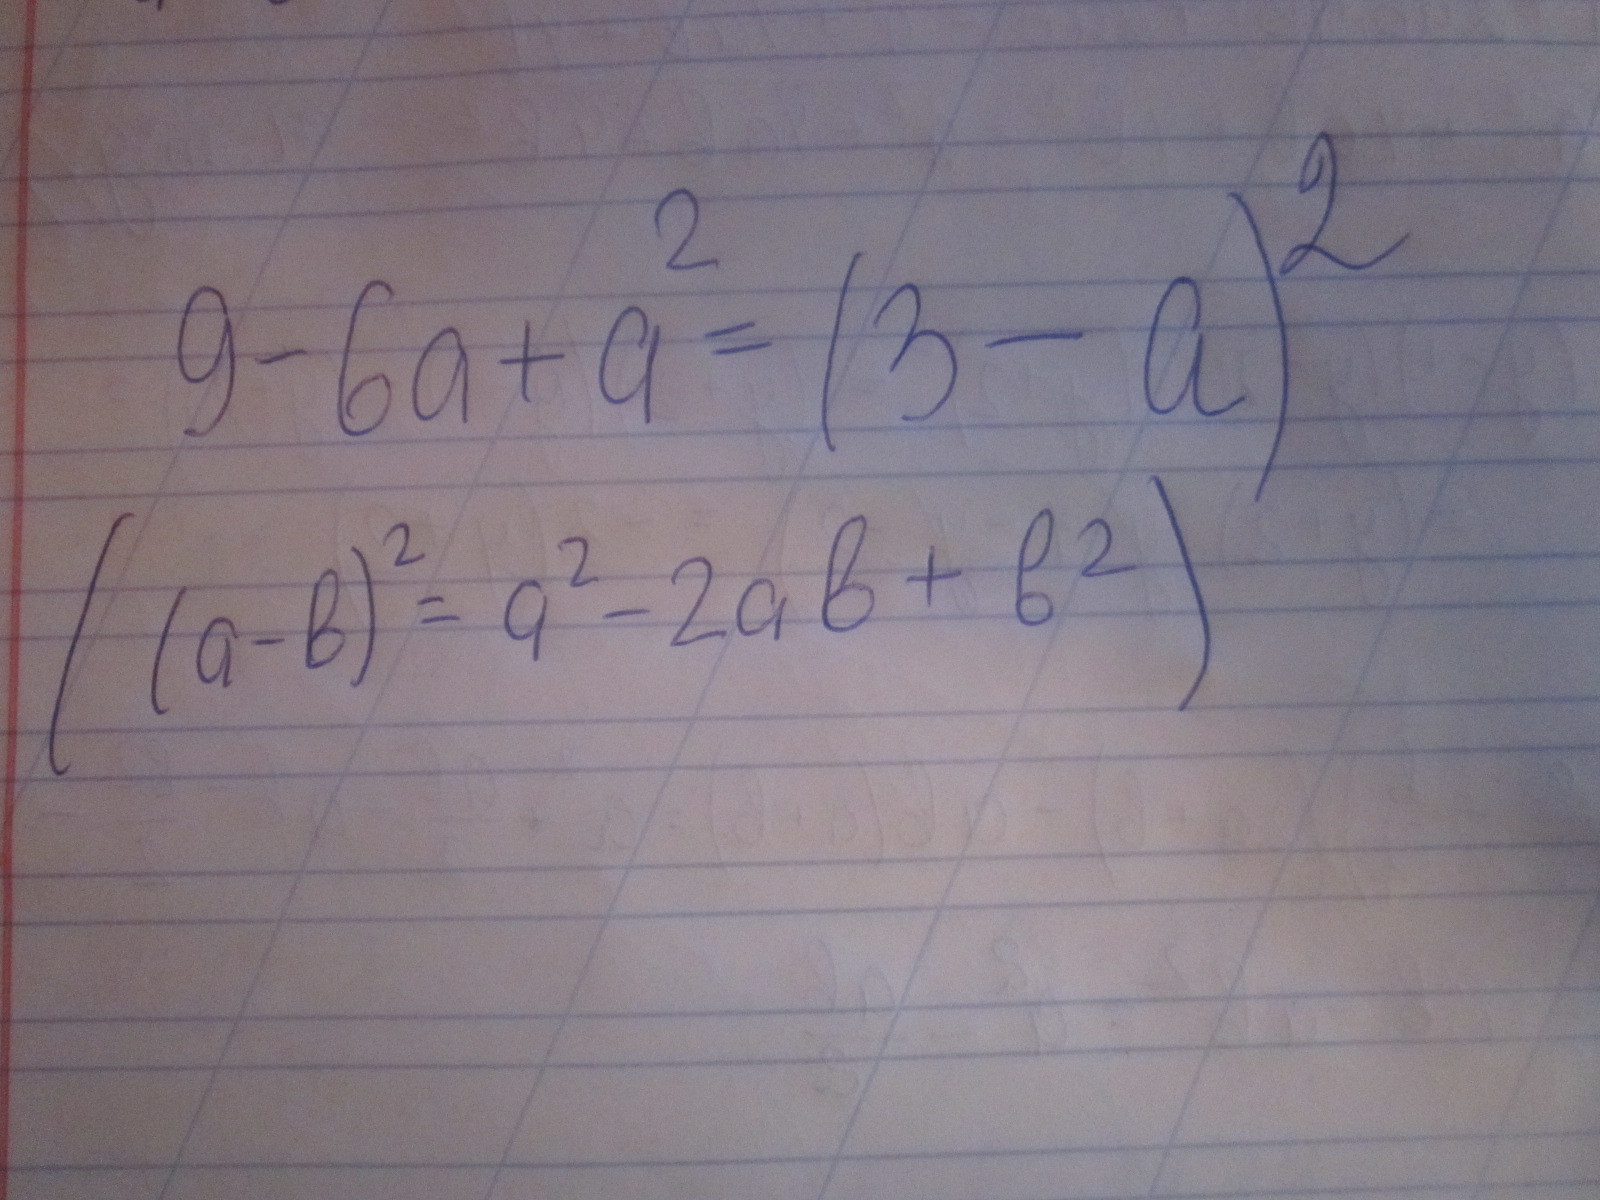 9-6a+a²=(3-a)²
((a-b)²=a²-2ab+b²)